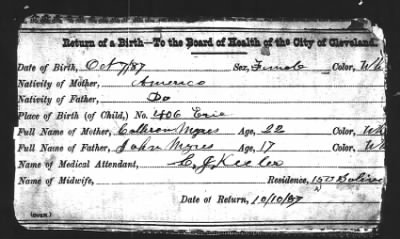 Return of a Birth—To the Board of Health of the City of Cleveland.
Date of Birth, Oct 7/87 Sex, Female Color, Wh
Nativity of Mother, America
Nativity of Father, Do
Place of Birth (of Child,) No. 406 Erie
Full Name of Mother, Myres Age, 22 Color, Wh
Full Name of Father, John Myres Age, 17 Color, Wh
Name of Medical Attendant, C. J.
Name of Midwife, Residence,
Date of Return, 10/10/87
(OVER.)